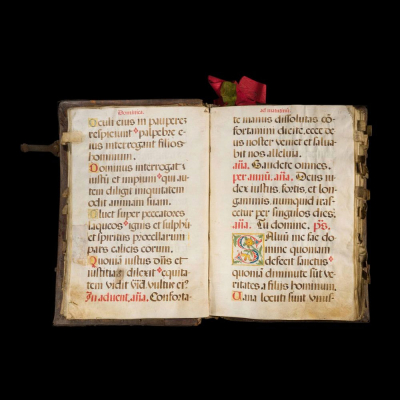 Dominica.
Oculi eius in pauperez
respiciunt palpebre e-
ius interrogant filios
hominum.
Dominus interrogat
iustū et impium qui au
tem diligit iniquitatem
odit animam suam.
Pluet super peccatores
laqueos ignis et sulphu
et spiritus procellarum
pars calicis eorum.
Quoniā iustus dn̄s et
iustitias dilexit equita
tem vidit
In aduent. an̄a. Conforta-
te manus dissolutas cō
fortamini dicite, ecce de
us noster veniet et salua
bit nos alleluia.
an̄a. Gaudete omnes.
per annū. an̄a. Deus iu
dex iustus, fortis, et lon-
ganimis, numquid iras-
cetur per singulos dies.
an̄a. Tu domine. ps.
Saluū me fac do
mine quoniam
defecit sanctus
quoniā diminute sūt ve-
ritates a filiis hominum.
Uana locuti sunt unus-